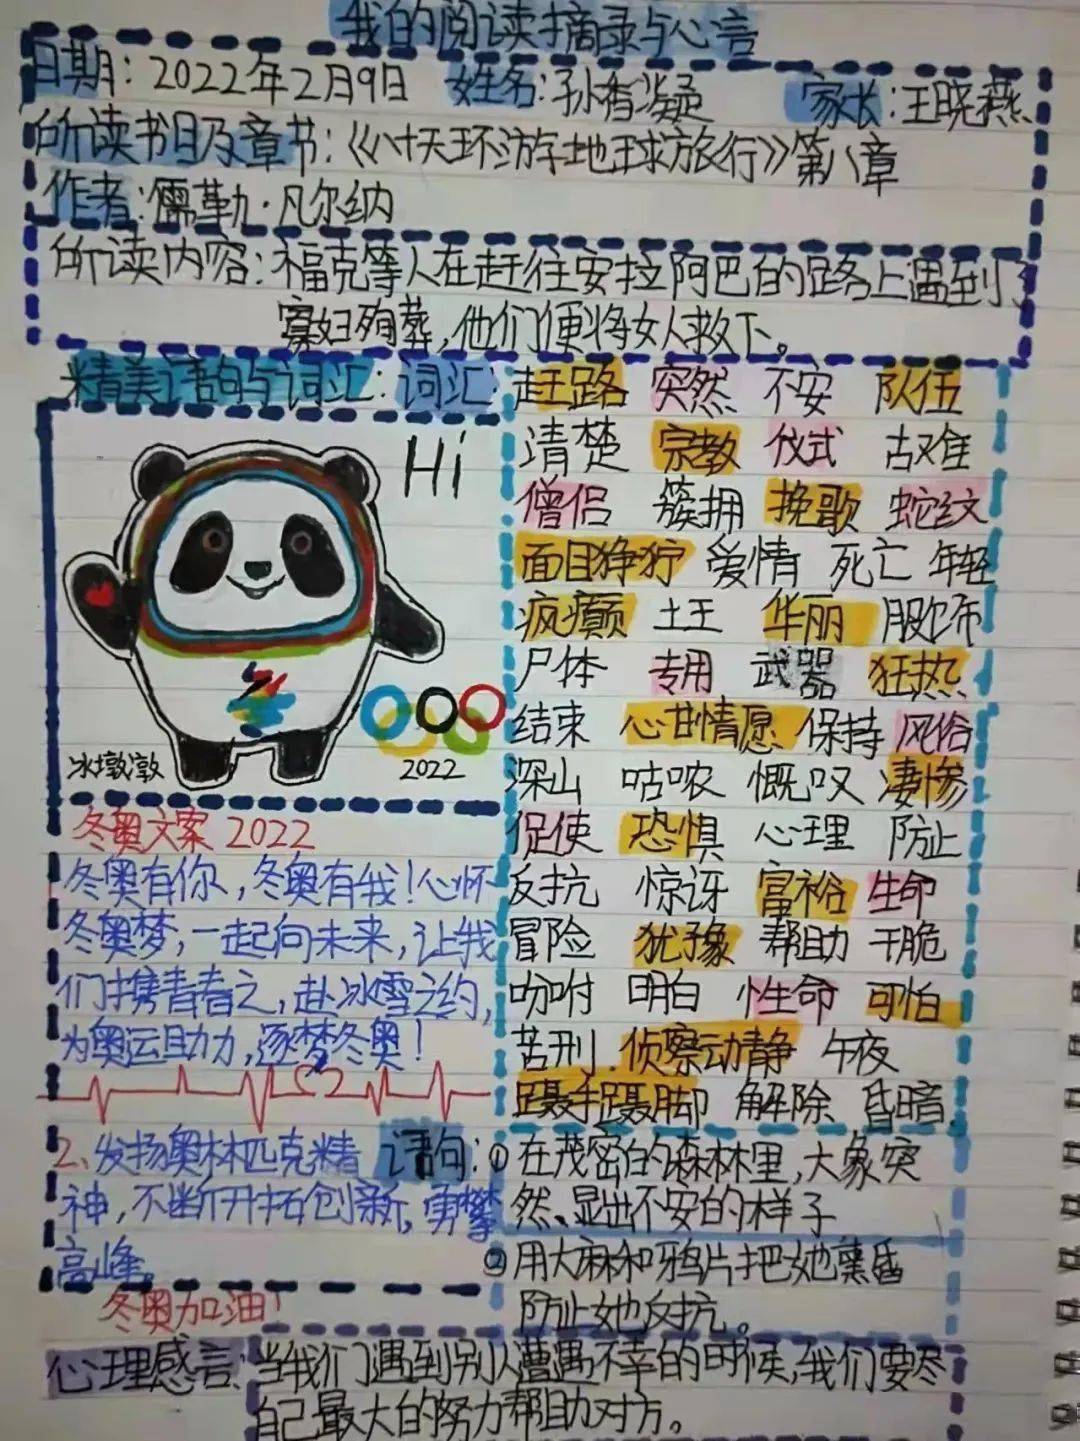 我的阅读摘录与心言
日期：2022年2月9日 姓名：孙香凝 家长：王晓燕
所读书目及章节：《八十天环游地球旅行》第八章
作者：儒勒·凡尔纳
所读内容：福克等人在赶往安拉阿巴的路上遇到了
寡妇殉葬，他们便将女人救下。
精美语句与词汇：词汇
赶路 突然 不安 队伍
清楚 宗教 仪式 古难
僧侣 簇拥 挽歌 蛇纹
面目狰狞 爱情 死亡 年轻
疯癫 土王 华丽 服饰
尸体 专用 武器 狂热
结束 心甘情愿 保持 风俗
深山 咕哝 慨叹 凄惨
促使 恐惧 心理 防止
反抗 惊讶 富裕 生命
冒险 犹豫 帮助 干脆
吩咐 明白 性命 可怕
苦刑 侦察动静 午夜
蹑手蹑脚 解除 昏暗
Hi
冰墩墩
2022
冬奥文案 2022
冬奥有你，冬奥有我！心怀
冬奥梦，一起向未来，让我
们携青春之，赴冰雪之约，
为奥运助力，逐梦冬奥！
2、发扬奥林匹克精
神，不断开拓创新，勇攀
高峰。
冬奥加油！
语句：①在茂密的森林里，大象突
然、显出不安的样子
②用大麻和鸦片把她熏昏
防止她反抗。
心理感言：当我们遇到别人遭遇不幸的时候，我们要尽
自己最大的努力帮助对方。